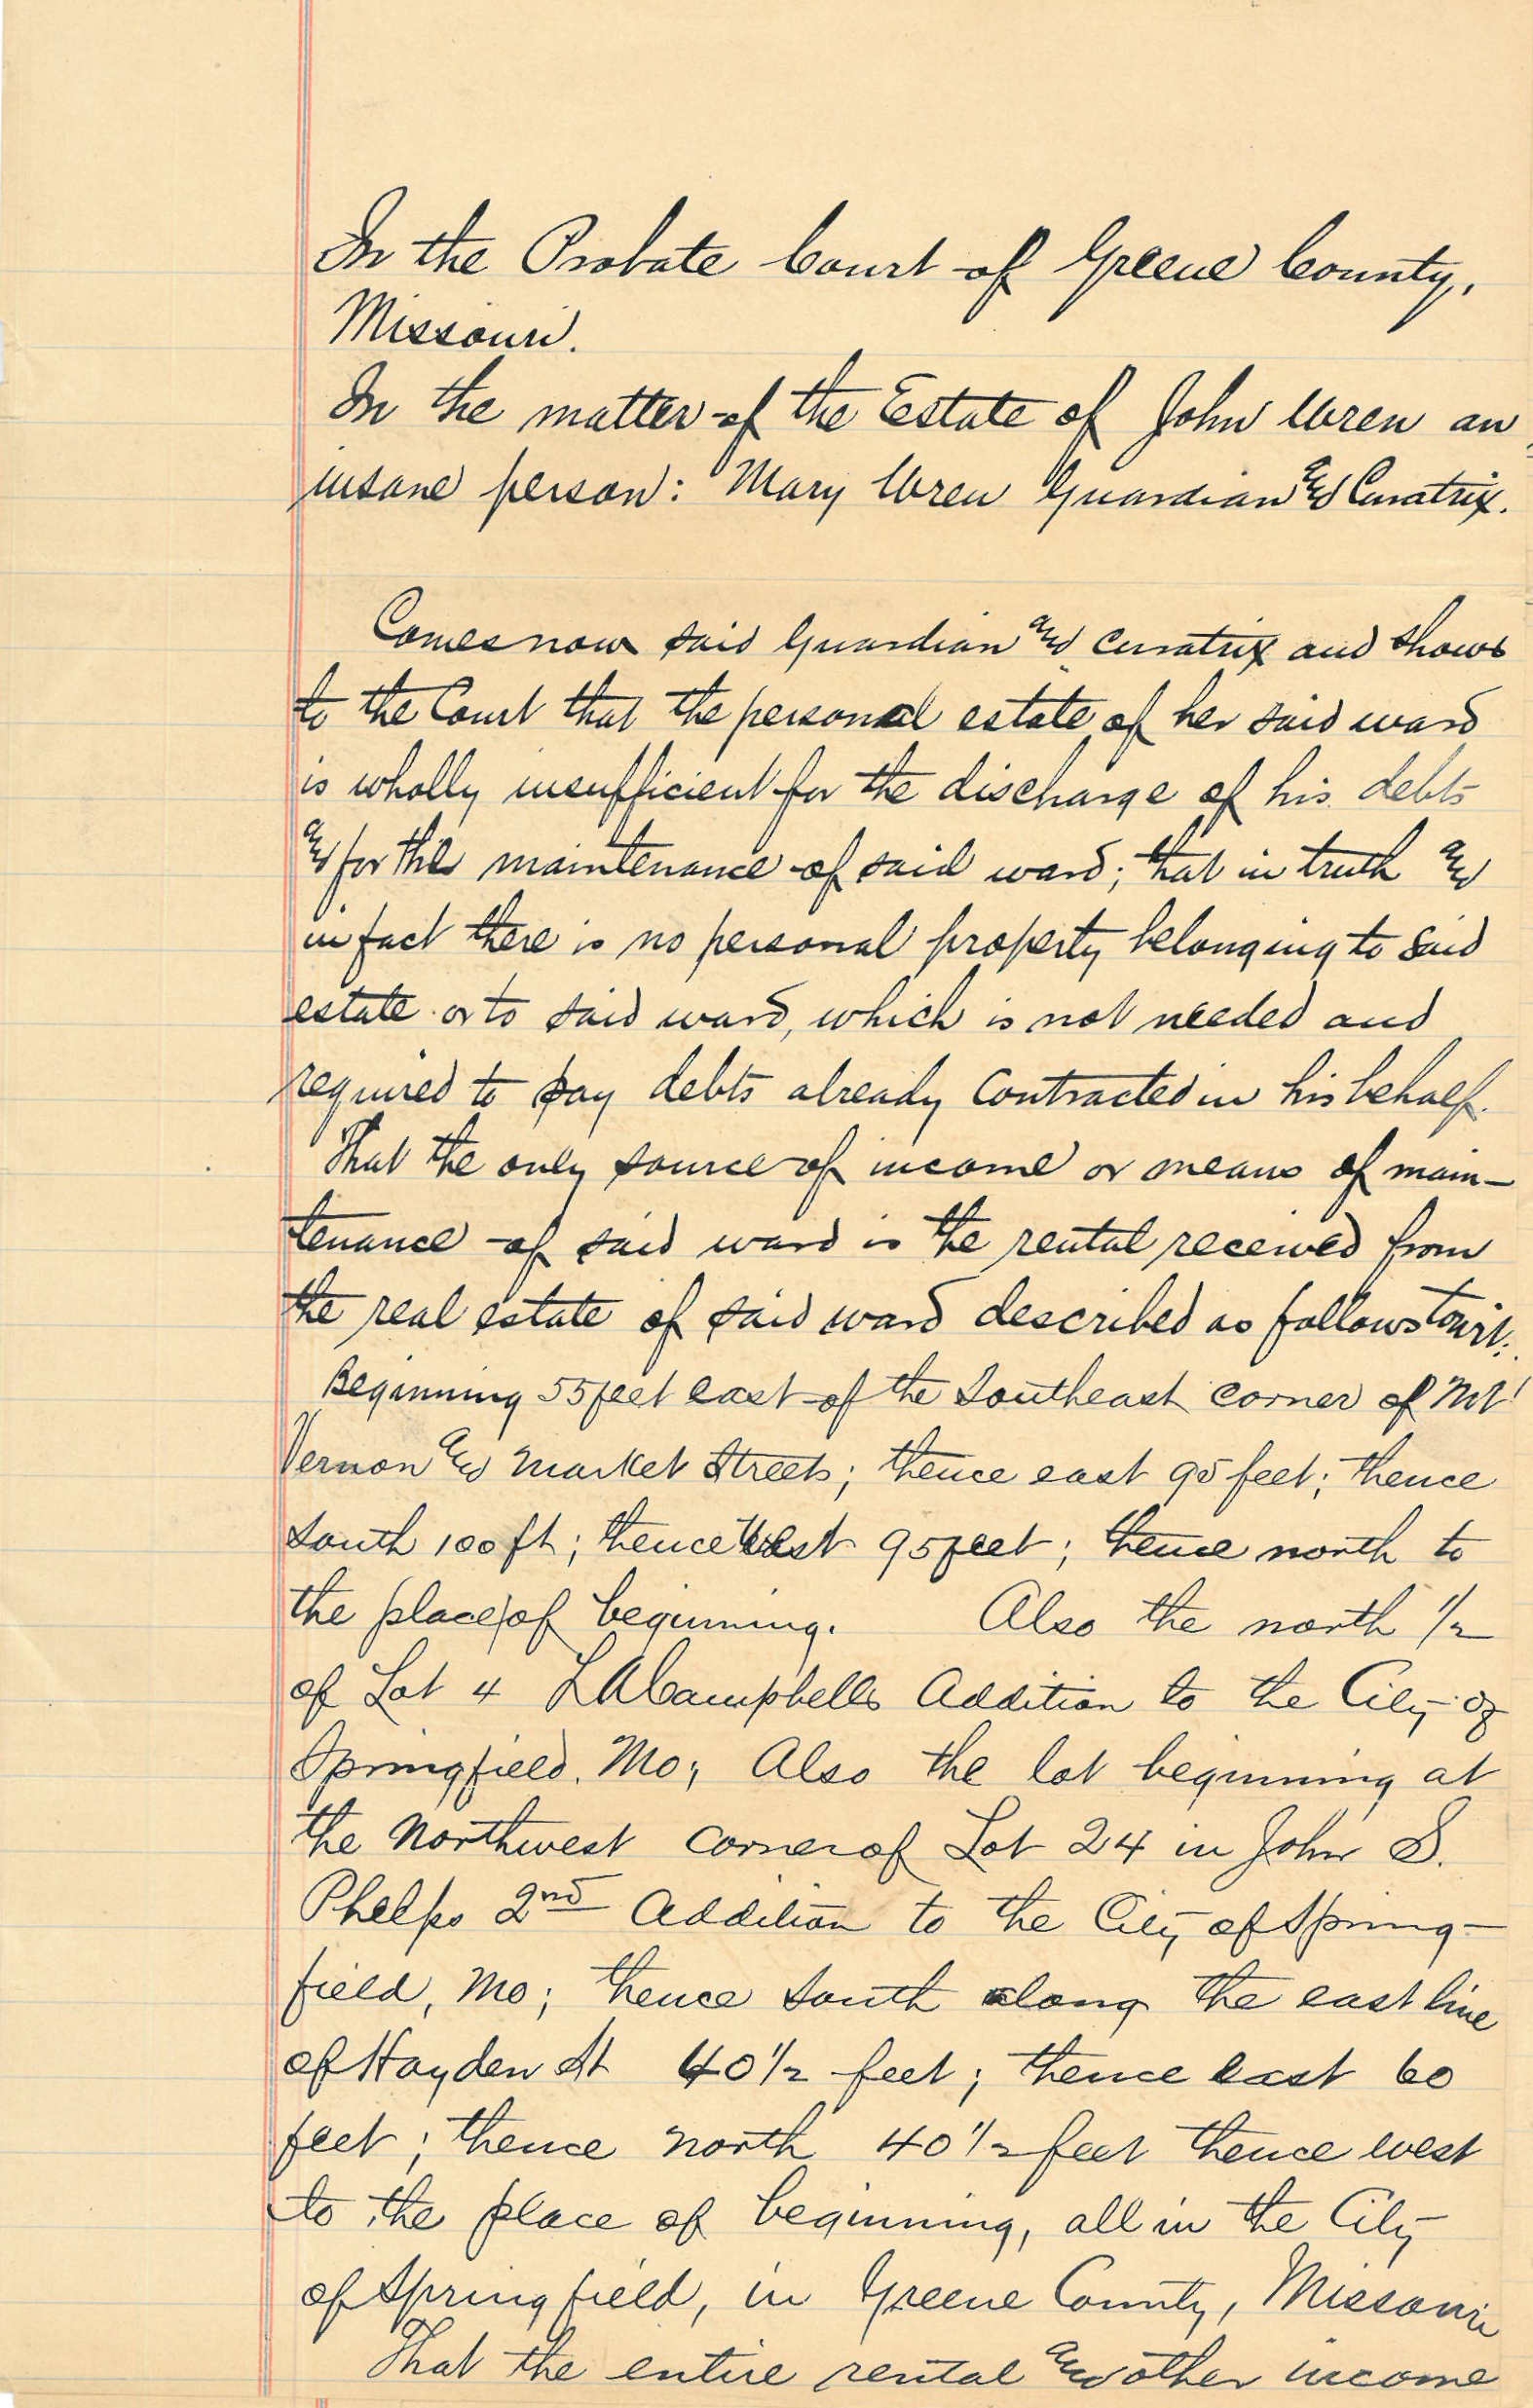 In the Probate Court of Greene County,
Missouri.
In the matter of the Estate of John Wren an
insane person: Mary Wren Guardian and Curatrix.
Comes now said Guardian and Curatrix and shows
to the Court that the personal estate of her said ward
is wholly insufficient for the discharge of his debts
and for the maintenance of said ward; that in truth and
in fact there is no personal property belonging to said
estate or to said ward, which is not needed and
required to pay debts already contracted in his behalf.
That the only source of income or means of main-
tenance of said ward is the rental received from
the real estate of said ward described as follows towit:
Beginning 55 feet east of the Southeast corner of Mt
Vernon and Market Streets; thence east 95 feet; thence
South 100 ft; thence West 95 feet; thence north to
the place of beginning. Also the north 1/2
of Lot 4 L A Campbells Addition to the City of
Springfield, Mo; Also the lot beginning at
the Northwest corner of Lot 24 in John S.
Phelps 2nd Addition to the City of Spring-
field, Mo; thence South along the east line
of Hayden St 40 1/2 feet; thence east 60
feet; thence north 40 1/2 feet thence west
to the place of beginning, all in the City
of Springfield, in Greene County, Missouri
That the entire rental and other income